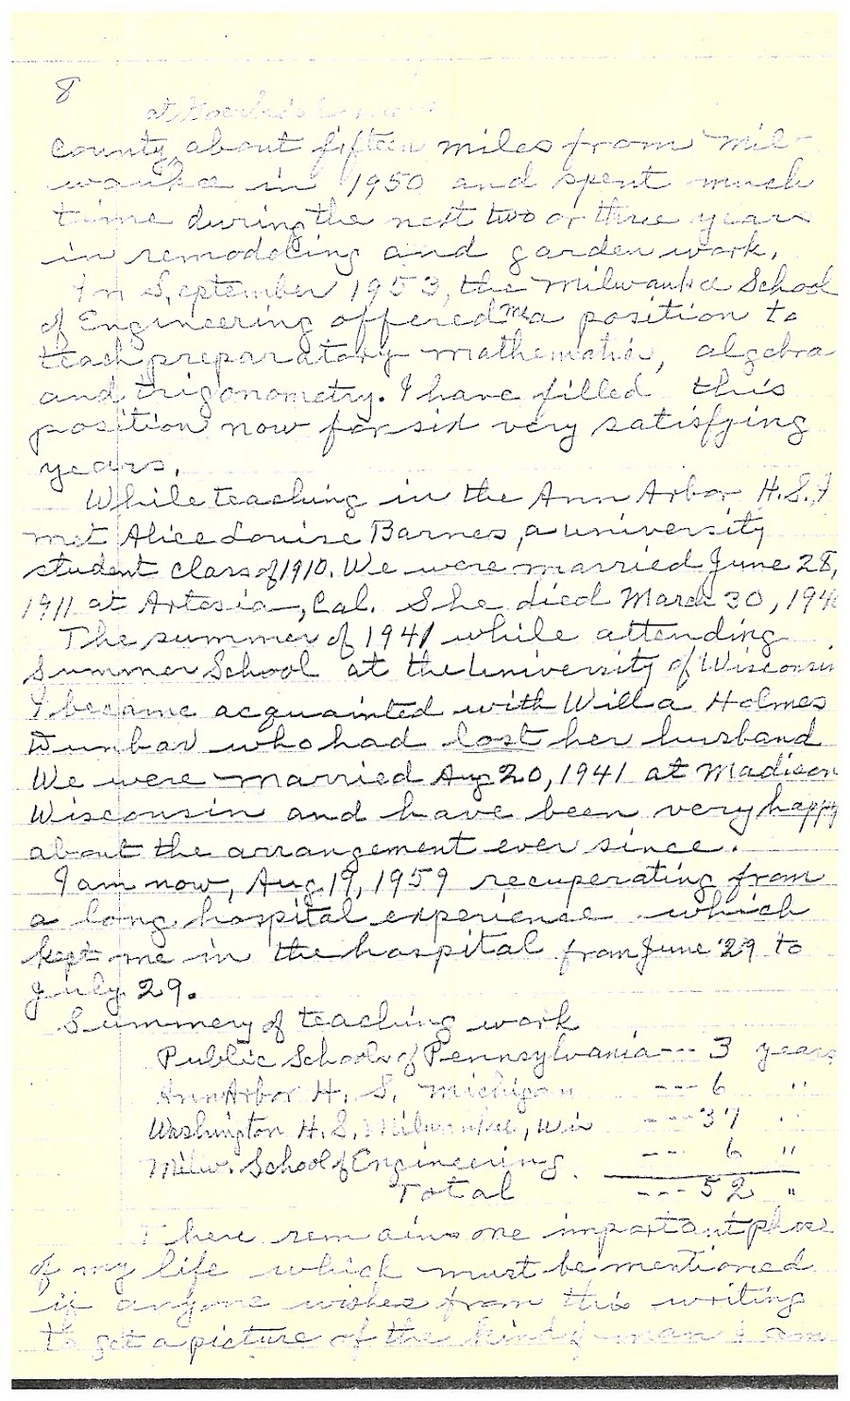 8
at
county, about fifteen miles from Mil-
waukee in 1950 and spent much
time during the next two or three years
in remodeling and garden work.
In September 1953, the Milwaukee School
of Engineering offered me a position to
teach preparatory mathematics, algebra
and trigonometry. I have filled this
position now for six very satisfying
years.
While teaching in the Ann Arbor H.S. I
met Alice Louise Barnes, a university
student class of 1910. We were married June 28,
1911 at Artesia, Cal. She died March 30, 194
The summer of 1941 while attending
Summer School at the University of Wisconsin
I became acquainted with Willa Holmes
Dunbar who had lost her husband
We were married Aug 20, 1941 at Madison
Wisconsin and have been very happy
about the arrangement ever since.
I am now, Aug. 19, 1959 recuperating from
a long hospital experience which
kept me in the hospital from June 29 to
July 29.
Summery of teaching work
Public Schools of Pennsylvania --- 3 years
Ann Arbor H. S. Michigan --- 6 "
Washington H. S. Milwaukee, Wis --- 37 "
Milw. School of Engineering. --- 6 "
Total --- 52 "
There remains one important phase
of my life which must be mentioned
if anyone wishes from this writing
to get a picture of the kind of man I am